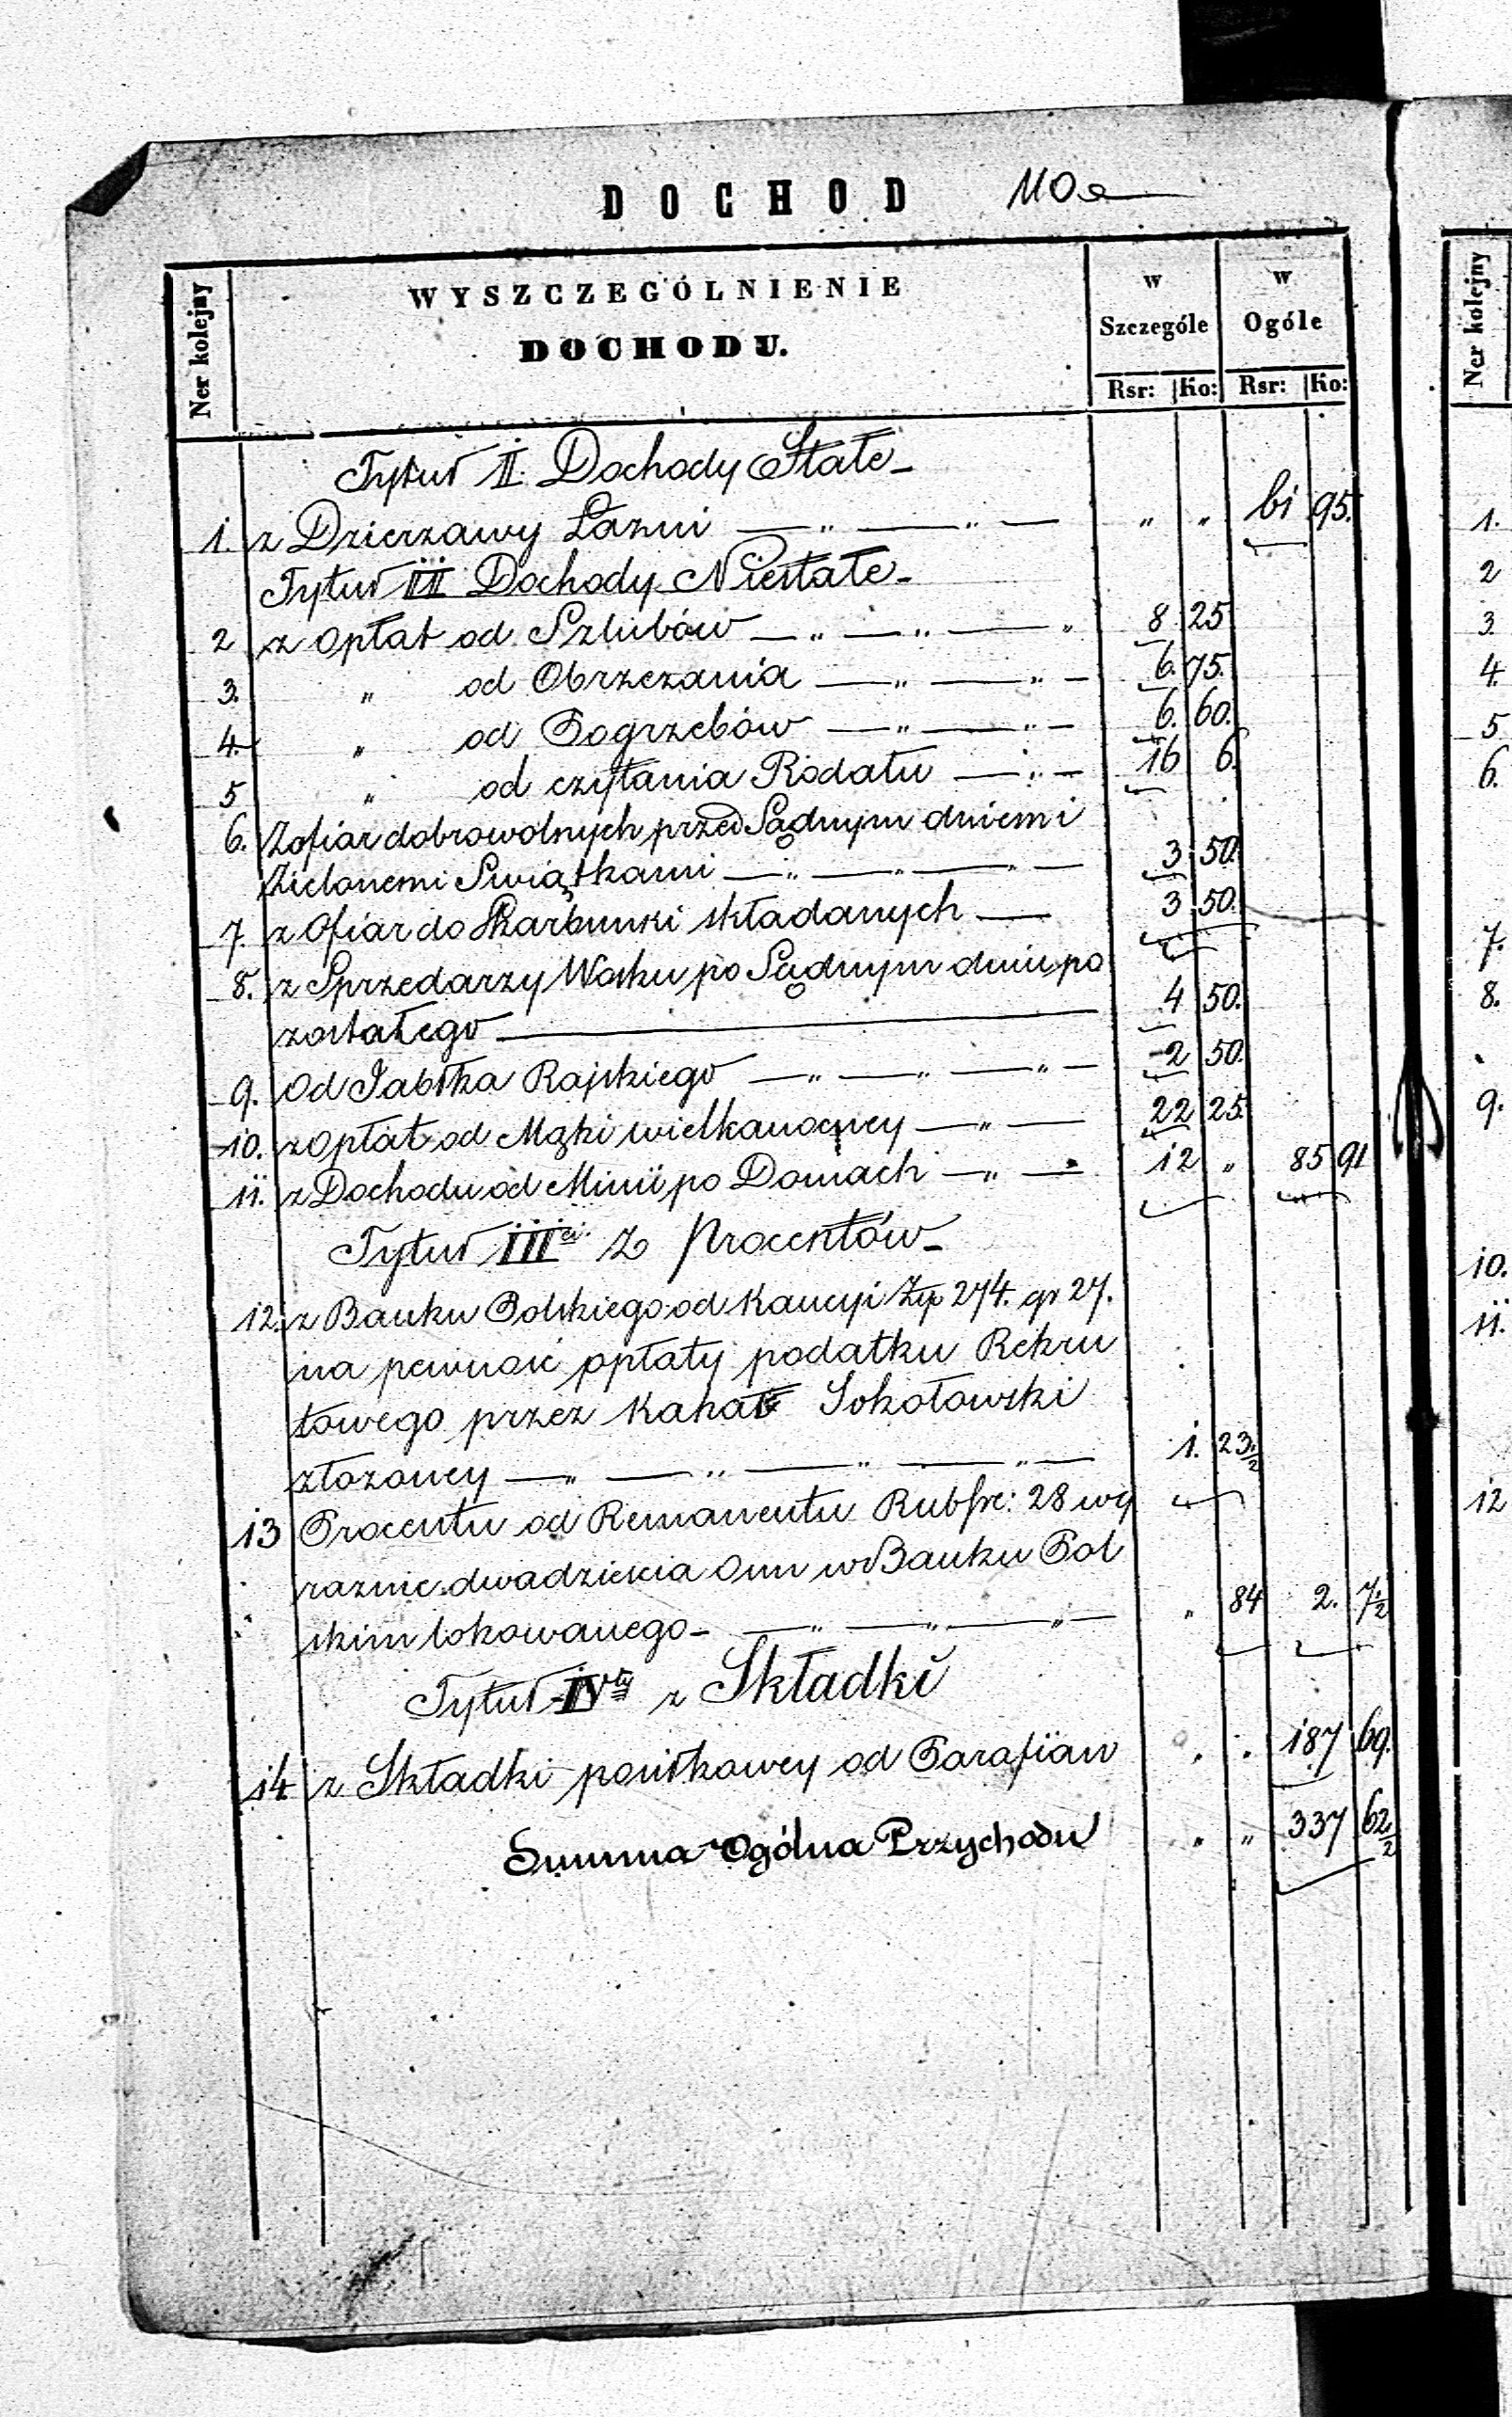 DOCHOD 110
Ner kolejny
WYSZCZEGÓLNIENIE
DOCHODU.
w Szczególe
w Ogóle
Rsr: Ko: Rsr: Ko:
Tytuł I. Dochody Stałe
1. z Dzierzawy Łazni „ „ 61 95.
Tytuł II Dochody Niestałe
2 z Opłat od Szlubów 8 25
3. „ od Obrzezania 6. 75.
4. „ od Pogrzebów 6. 60.
5 „ od czytania Rodału 16 6.
6. Z ofiar dobrowolnych przed Sądnym dniem i
Zielonemi Swiątkami 3 50.
7. z Ofiar do Skarbunki składanych 3 50.
8. z Sprzedarzy Wosku po Sądnym dniu po
zostałego 4 50.
9. Od Jabłka Rajskiego 2 50.
10. z Opłat od Mąki wielkanocney 22 25.
11. z Dochodu od Minii po Domach 12 „ 85 91
Tytuł III ci. Z Procentów
12. z Banku Polskiego od Kaucyi Złp 274. gr 27.
na pewnosc opłaty podatku Rekru
towego przez Kahał Sokołowski
złozoney 1. 23 1/2
13 Procentu od Remanentu Rubsre: 28 wy
raznie dwadziescia Osm w Banku Pol
skim lokowanego „ 84 2. 7 1/2
Tytuł IV ty z Składki
14. z Składki posiłkowey od Parafian „ „ 187 69.
Summa Ogólna Przychodu „ „ 337 62 1/2
Ner kolejny
1.
2
3.
4.
5
6.
7.
8.
9.
10.
11.
12